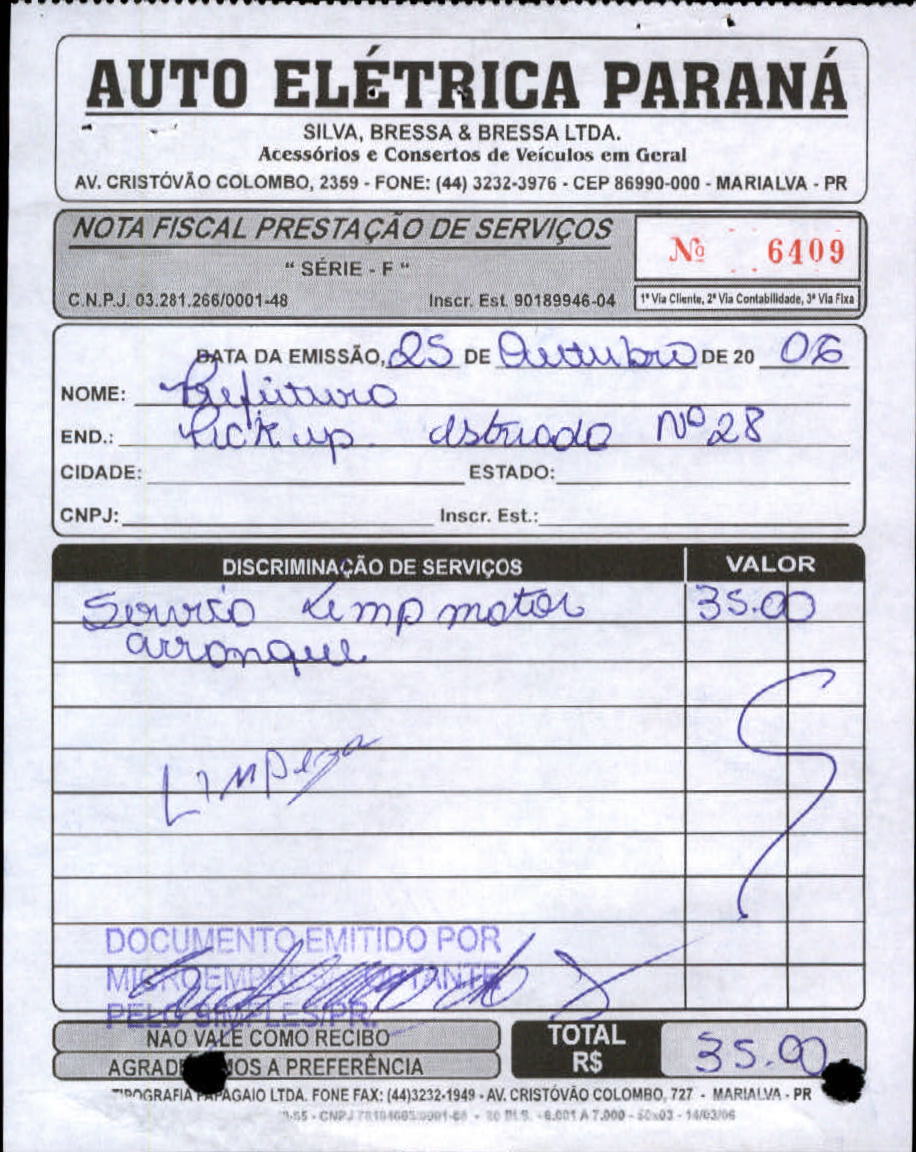 AUTO ELÉTRICA PARANÁ
SILVA, BRESSA & BRESSA LTDA.
Acessórios e Consertos de Veículos em Geral
AV. CRISTÓVÃO COLOMBO, 2359 - FONE: (44) 3232-3976 - CEP 86990-000 - MARIALVA - PR
NOTA FISCAL PRESTAÇÃO DE SERVIÇOS
Nº 6409
" SÉRIE - F "
C.N.P.J. 03.281.266/0001-48 Inscr. Est. 90189946-04
1ª Via Cliente, 2ª Via Contabilidade, 3ª Via Fixa
DATA DA EMISSÃO, 25 DE Outubro DE 20 06
NOME: Prefeitura
END.: Pickup estrada Nº 28
CIDADE: ESTADO:
CNPJ: Inscr. Est.:
DISCRIMINAÇÃO DE SERVIÇOS VALOR
Serviço Limp motor 35.00
arranque
Limpeza
DOCUMENTO EMITIDO POR
PELO SIMPLES/PR.
NÃO VALE COMO RECIBO
A PREFERÊNCIA
TOTAL
R$ 35.00
TIPOGRAFIA PAPAGAIO LTDA. FONE FAX: (44)3232-1949 - AV. CRISTÓVÃO COLOMBO, 727 - MARIALVA - PR
- 6.001 A 7.000 - 50x03 - 14/03/06